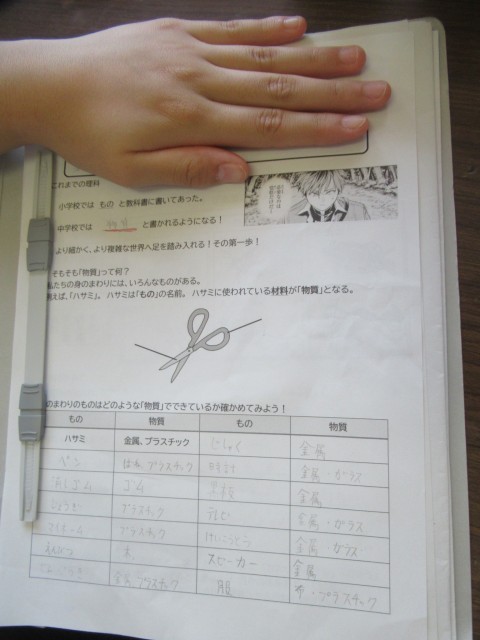 これまでの理科
小学校では もの と教科書に書いてあった。
中学校では 物質 と書かれるようになる！
より細かく、より複雑な世界へ足を踏み入れる！その第一歩！
そもそも「物質」って何？
私たちの身のまわりには、いろんなものがある。
例えば、「ハサミ」。ハサミは「もの」の名前。ハサミに使われている材料が「物質」となる。
のまわりのものはどのような「物質」でできているか確かめてみよう！
もの 物質 もの 物質
ハサミ 金属、プラスチック 金属
ペン プラスチック 時計 金属・ガラス
消しゴム ゴム 金属
じょうぎ プラスチック テレビ 金属・ガラス
プラスチック けいこうとう 金属・ガラス
えんぴつ 木 スピーカー 金属
金属、プラスチック 服 布・プラスチック